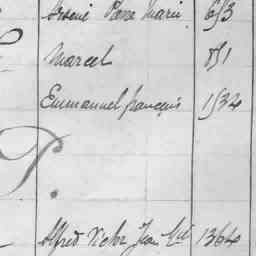 Arsene Pierre Marie 653
Marcel 851
Emmanuel françois 1534
P.
Alfred Victor Jean 1364